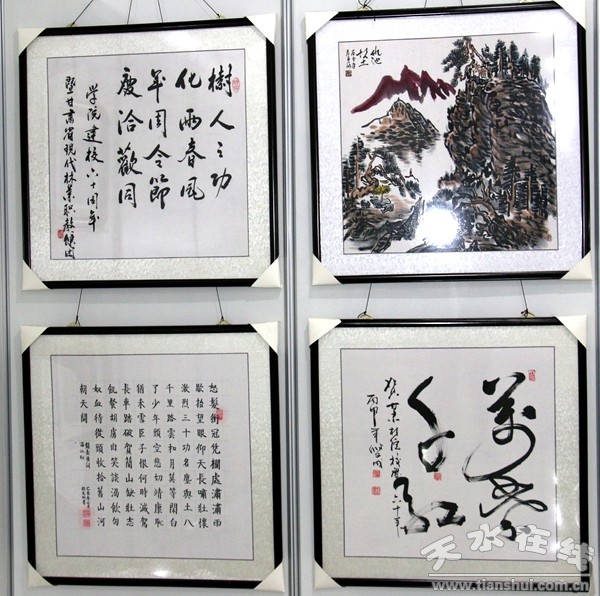 樹人之功
化雨春風
年周令節
慶洽歡同
学院建校六十周年
暨甘肃省現代林業职教
仇池
怒髮衝冠凭欄處瀟瀟雨
歇抬望眼仰天長嘯壯懷
激烈三十功名塵與土八
千里路雲和月莫等閒白
了少年頭空悲切靖康恥
猶未雪臣子恨何時滅駕
長車踏破賀蘭山缺壯志
飢餐胡虜肉笑談渴飲匈
奴血待從頭收拾舊山河
朝天闕
萬紫
千红
六十年
丙申年
天水在线
www.tianshui.com.cn